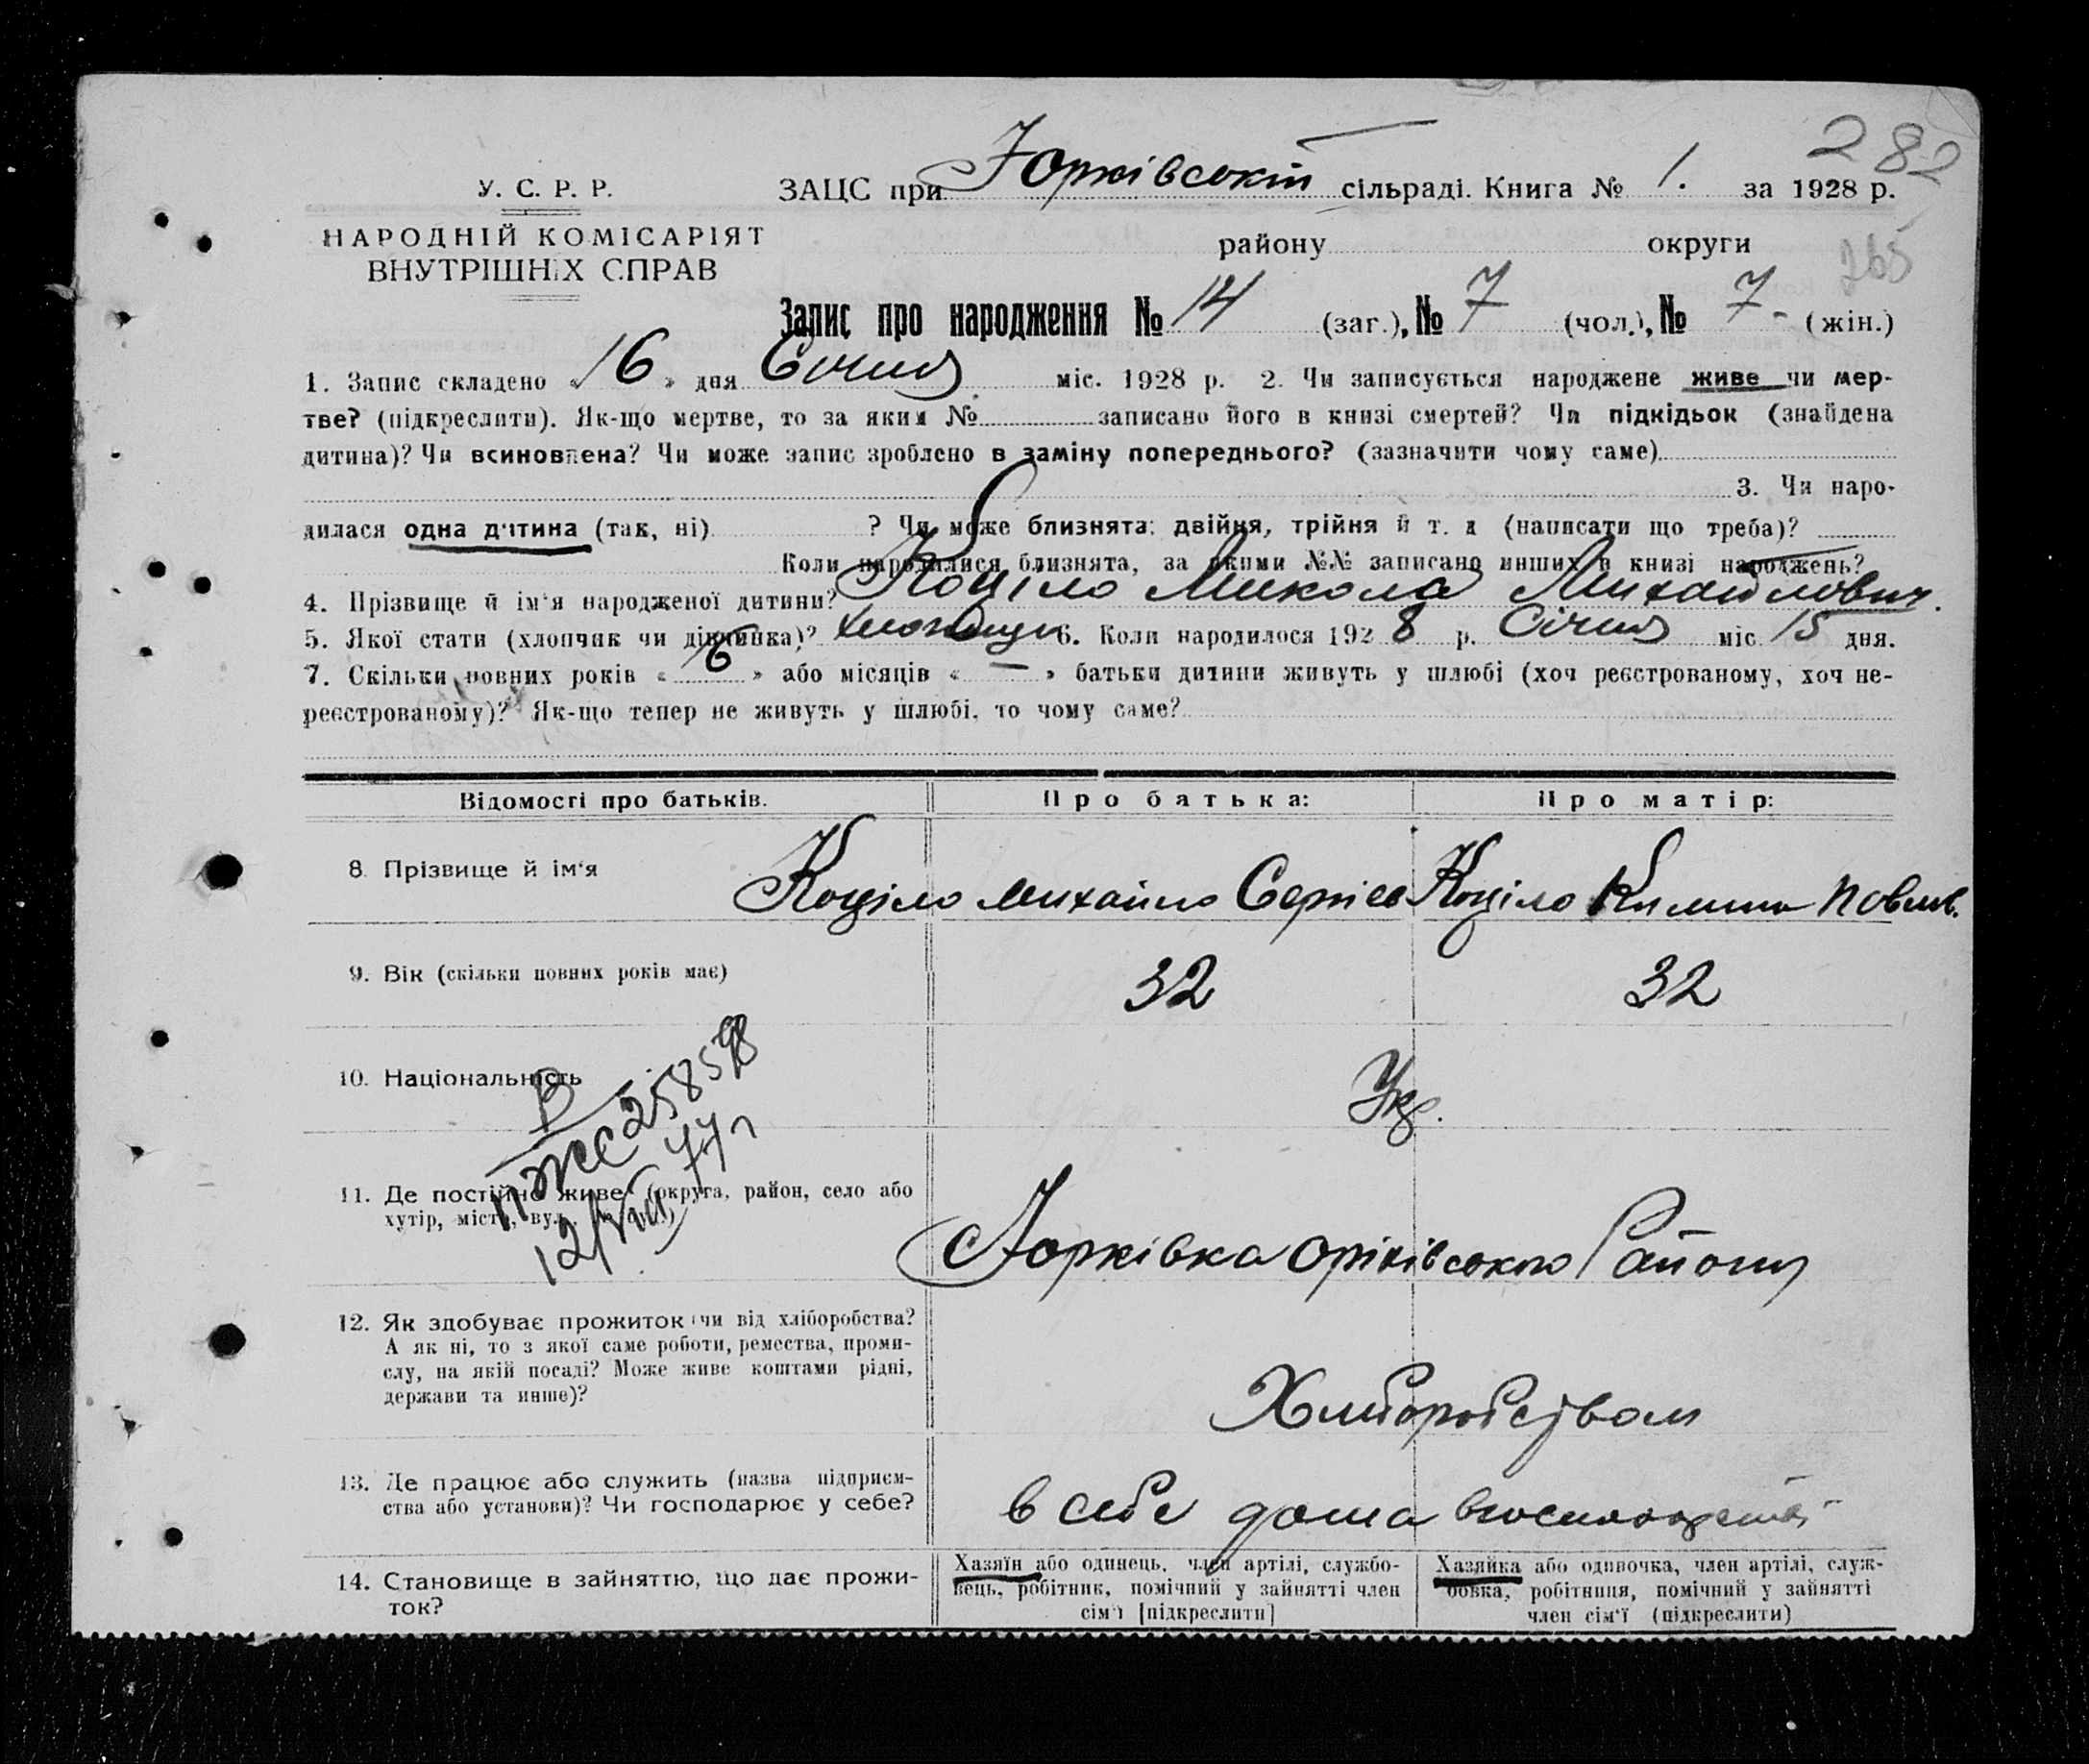 282
У. С. Р. Р.
ЗАЦС при Юрківській сільраді. Книга № 1. за 1928 р.
НАРОДНІЙ КОМІСАРІЯТ
району округи
265
ВНУТРІШНІХ СПРАВ
Запис про народження № 14 (заг.), № 7 (чол.), № 7 - (жін.)
1. Запис складено « 16 » дня Січня міс. 1928 р. 2. Чи записується народжене живе чи мер-
тве? (підкреслити). Як-що мертве, то за яким № записано його в книзі смертей? Чи підкідьок (знайдена
дитина)? Чи всиновлена? Чи може запис зроблено в заміну попереднього? (зазначити чому саме)
3. Чи наро-
дилася одна дитина (так, ні) ? Чи може близнята: двійня, трійня й т. д (написати що треба)?
Коли народилися близнята, за якими №№ записано инших в книзі народжень?
4. Прізвище й ім'я народженої дитини? Коціло Микола Михайлович.
5. Якої стати (хлопчик чи дівчинка)? 6. Коли народилося 1928 р. Січня міс 15 дня.
7. Скільки повних років « 6 » або місяців « — » батьки дитини живуть у шлюбі (хоч реєстрованому, хоч не-
реєстрованому)? Як-що тепер не живуть у шлюбі, то чому саме?
Відомості про батьків. Про батька: Про матір:
8. Прізвище й ім'я Коціло Михайло Сергієв Коціло Павлів.
9. Вік (скільки повних років має) 32 32
10. Національність Укр.
В
ПЖС 258598
12/VIII 77 г
11. Де постійно живе (округа, район, село або
хутір, місто, вул.
Юрківка Оріхівського Району
12. Як здобуває прожиток (чи від хліборобства?
А як ні, то з якої саме роботи, ремества, проми-
слу, на якій посаді? Може живе коштами рідні,
держави та инше)?
Хліборобством
13. Де працює або служить (назва підприєм-
ства або установи)? Чи господарює у себе?
в себе дома
14. Становище в зайняттю, що дає прожи-
ток?
Хазяїн або одинець, член артілі, службо-
вець, робітник, помічний у зайнятті член
сім'ї [підкреслити]
Хазяйка або одиночка, член артілі, служ-
бовка, робітниця, помічний у зайнятті
член сім'ї (підкреслити)